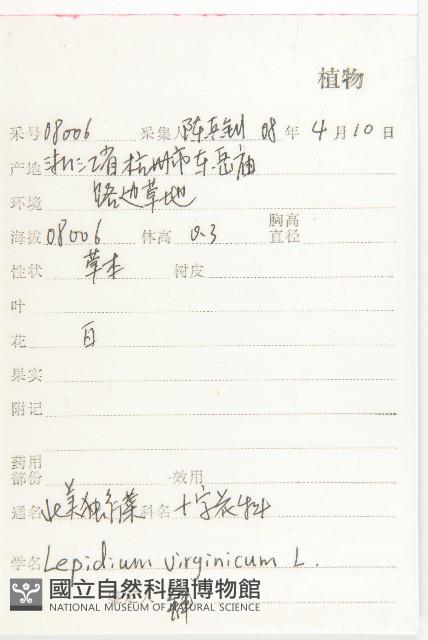 植物
采号 08006 采集人 陈兵钊 08 年 4 月 10 日
产地 浙江省杭州市东岳庙
环境 路边草地
海拔 08006 体高 0.3 胸高直径
性状 草本 树皮
叶
花 白
果实
附记
药用部份 效用
通名 北美独行菜 科名 十字花科
学名 Lepidium virginicum L.
國立自然科學博物館
NATIONAL MUSEUM OF NATURAL SCIENCE